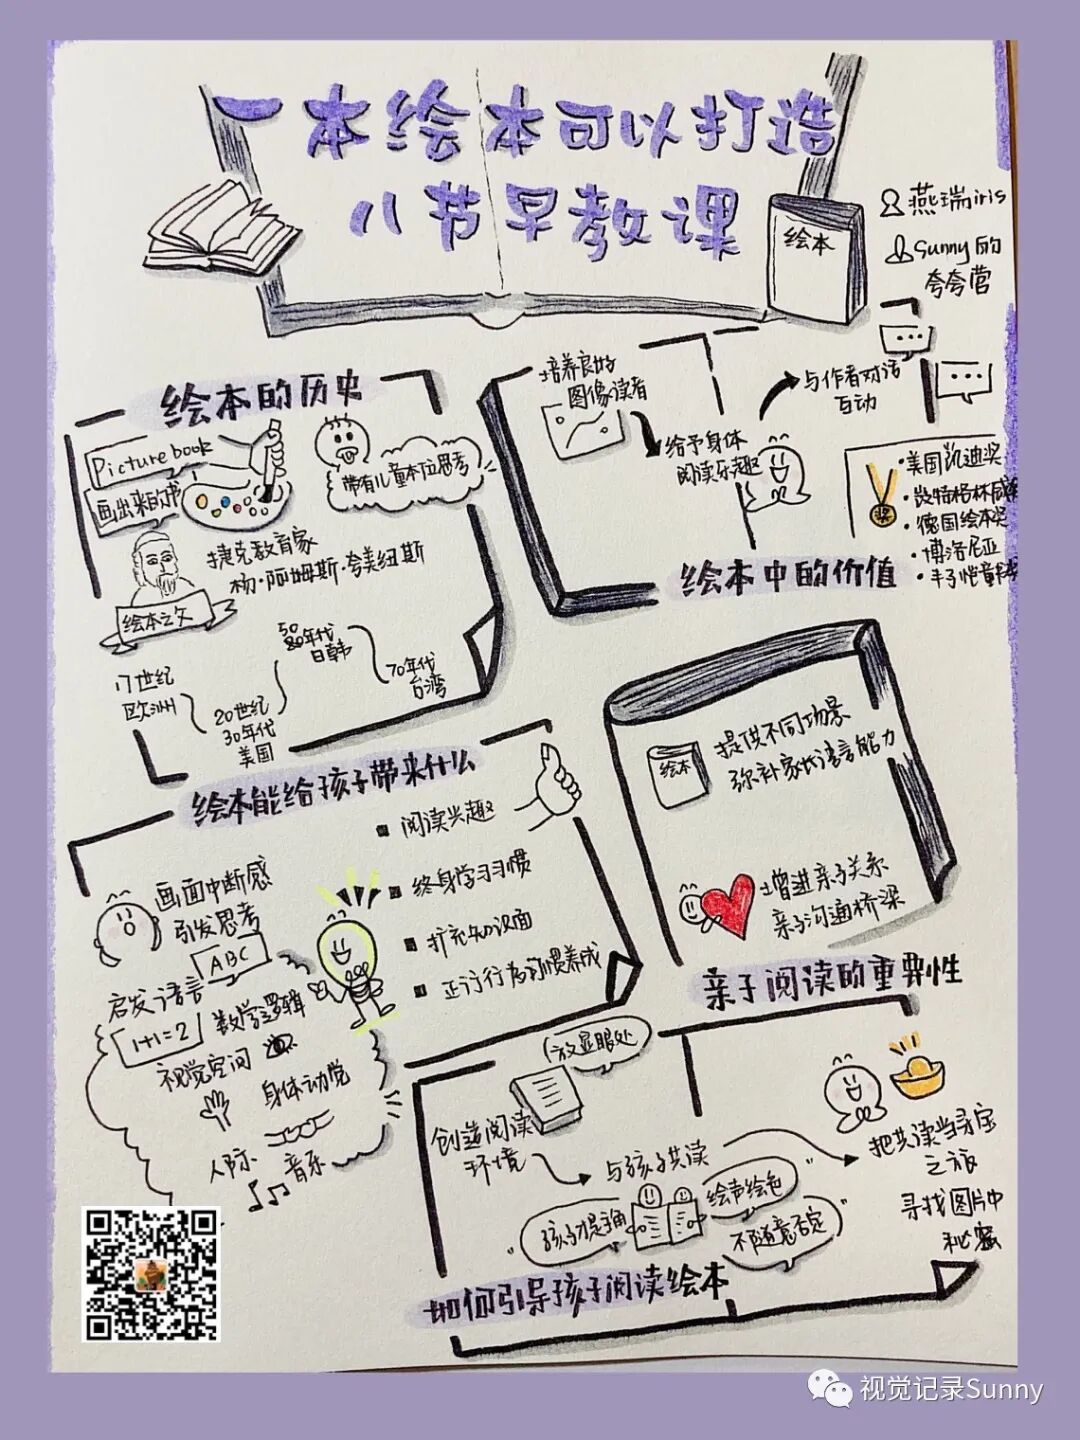 一本绘本可以打造
八节早教课
绘本
燕瑞iris
sunny的
夸夸营
绘本的历史
Picture book
画出来的书
带有儿童本位思考
捷克教育家
杨·阿姆斯·夸美纽斯
绘本之父
17世纪
欧洲
20世纪
30年代
美国
50
年代
日韩
70年代
台湾
培养良好
图像读者
给予身体
阅读乐趣
与作者对话
互动
奖
·美国凯迪奖
·凯特格林
·德国绘本奖
·博洛尼亚
·丰子恺
绘本中的价值
绘本能给孩子带来什么
画面中断感
引发思考
ABC
启发语言
1+1=2
数学逻辑
视觉空间
身体动觉
人际
音乐
阅读兴趣
终身学习习惯
扩充知识面
正订行为习惯养成
绘本
提供不同场景
弥补家长语言能力
增进亲子关系
亲子沟通桥梁
亲子阅读的重要性
放显眼处
创造阅读
环境
与孩子共读
绘声绘色
"孩子是主角
不随意否定"
把共读当寻宝
之旅
寻找图片中
秘密
如何引导孩子阅读绘本
视觉记录Sunny